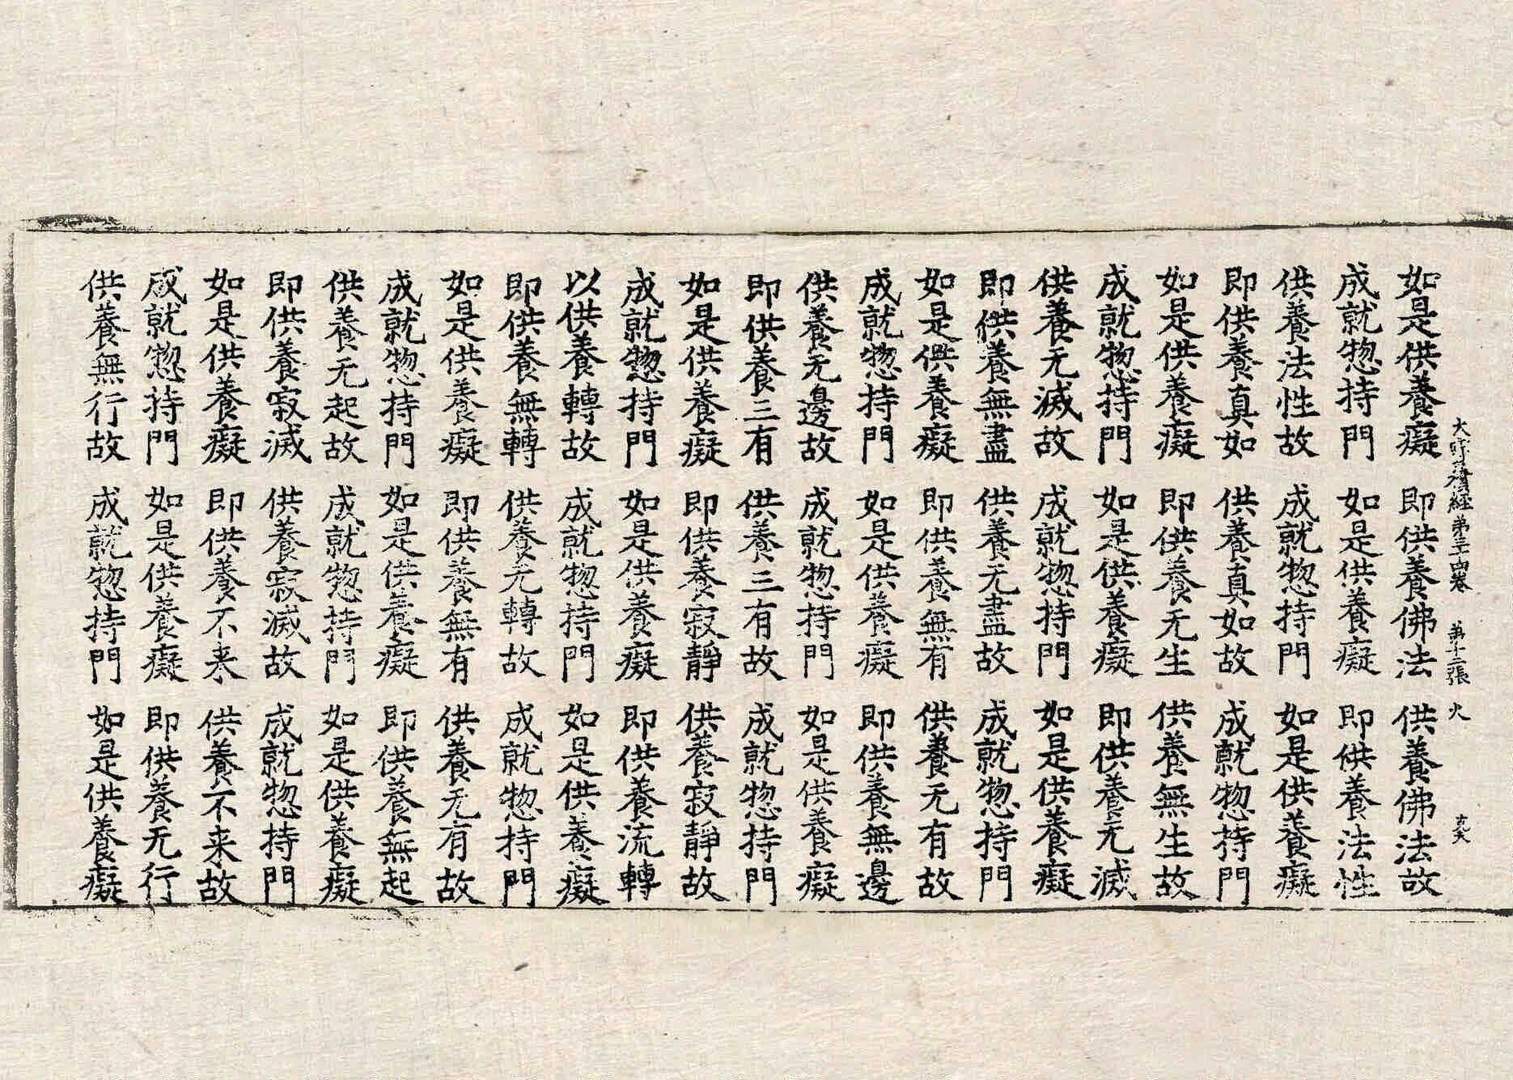 大寶積經第 卷 第 張 火
如是供養癡 即供養佛法 供養佛法故
成就惣持門 如是供養癡 即供養法性
供養法性故 成就惣持門 如是供養癡
即供養真如 供養真如故 成就惣持門
如是供養癡 即供養无生 供養無生故
成就惣持門 如是供養癡 即供養无滅
供養无滅故 成就惣持門 如是供養癡
即供養無盡 供養无盡故 成就惣持門
如是供養癡 即供養無有 供養无有故
成就惣持門 如是供養癡 即供養無邊
供養无邊故 成就惣持門 如是供養癡
即供養三有 供養三有故 成就惣持門
如是供養癡 即供養寂靜 供養寂靜故
成就惣持門 如是供養癡 即供養流轉
以供養轉故 成就惣持門 如是供養癡
即供養無轉 供養无轉故 成就惣持門
如是供養癡 即供養無有 供養无有故
成就惣持門 如是供養癡 即供養無起
供養无起故 成就惣持門 如是供養癡
即供養寂滅 供養寂滅故 成就惣持門
如是供養癡 即供養不来 供養不来故
成就惣持門 如是供養癡 即供養无行
供養無行故 成就惣持門 如是供養癡